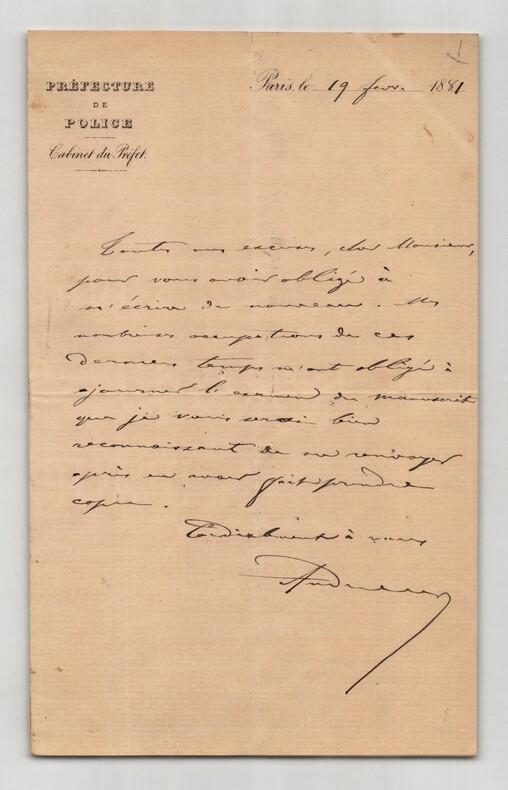 PRÉFECTURE
DE
POLICE
Cabinet du Préfet.
Paris, le 19 fevr. 1881
Toutes mes excuses, cher Monsieur,
pour vous avoir obligé à
m'écrire de nouveau. Mes
nombreuses occupations de ces
derniers temps m'ont obligé à
ajourner l'examen du manuscrit
que je vous serai bien
reconnaissant de me renvoyer
après en avoir fait prendre
copie.
Cordialement à vous
Andrieux